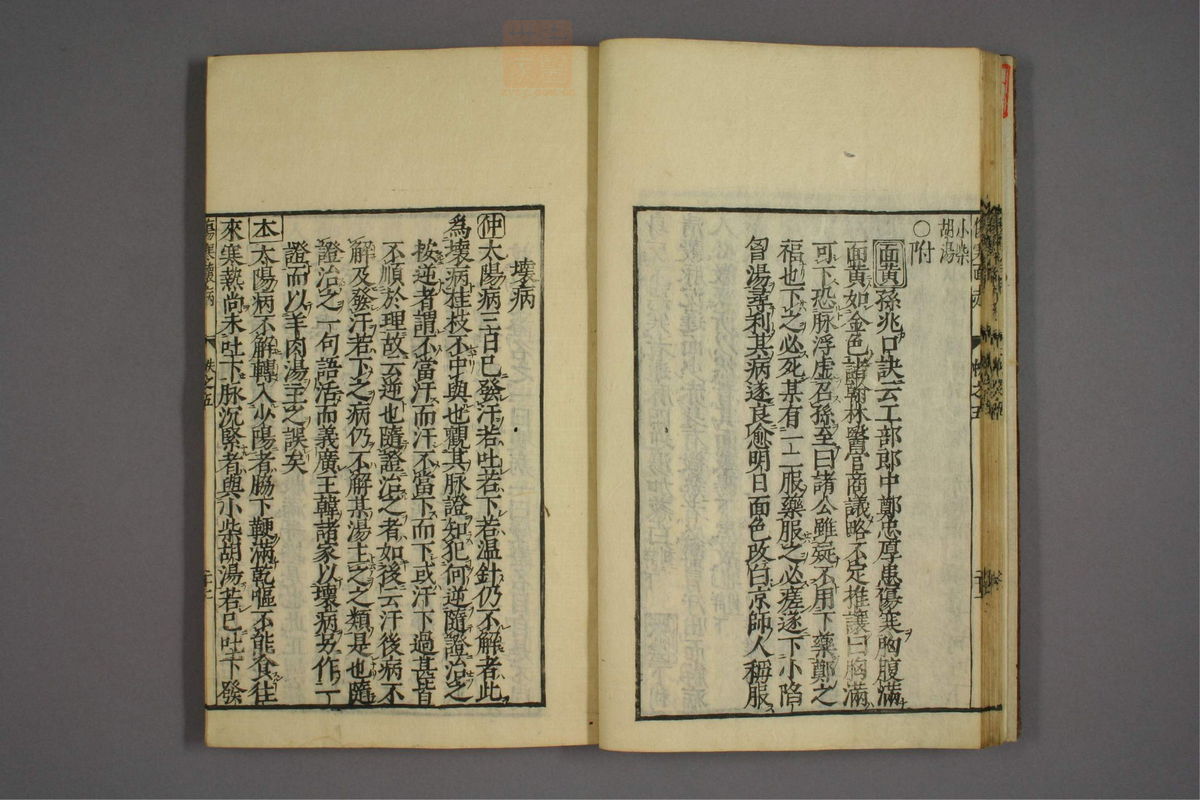 小柴
胡湯
○附
面黄孫兆口訣云工部郎中鄭忠厚患傷寒胸腹滿
面黄如金色諸翰林醫官商議略不定推讓曰胸滿
可下恐脉浮虛召孫至曰諸公雖疑不用下藥鄭之
福也下之必死某有一二服藥服之必瘥遂下小陷
曾湯尋利其病遂良愈明日面色改白京師人稱服
壞病
仲太陽病三日已發汗若吐若下若温針仍不解者此
為壞病桂枝不中與也觀其脉證知犯何逆隨證治之
按逆者謂不當汗而汗不當下而下或汗下過甚皆
不順於理故云逆也隨證治之者如後云汗後病不
解及發汗若下之病仍不解某湯主之之類是也隨
證治之一句語活而義廣王韓諸家以壞病另作一
證而以羊肉湯主之誤矣
本太陽病不解轉入少陽者脇下鞕滿乾嘔不能食往
來寒熱尚未吐下脉沉緊者與小柴胡湯若已吐下發
傷寒壞病 帙之五